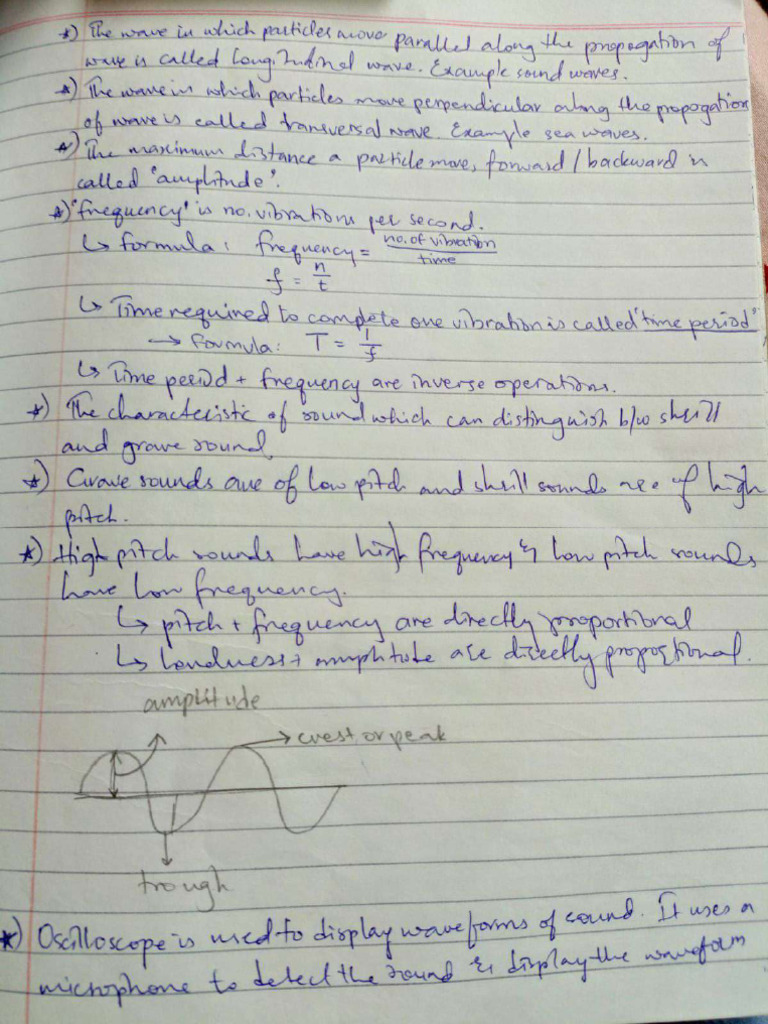 *) The wave in which particles move parallel along the propagation of
wave is called longitudinal wave. Example sound waves.
*) The wave in which particles move perpendicular along the propogation
of wave is called transversal wave. Example sea waves.
*) The maximum distance a particle moves forward / backward is
called "amplitude".
*) 'frequency' is no. vibrations per second.
↳ formula: frequency = no. of vibration / time
f = n/t
↳ Time required to complete one vibration is called 'time period'
→ formula: T = 1/f
↳ Time period + frequency are inverse operations.
*) The characteristic of sound which can distinguish b/w shrill
and grave sound
*) Grave sounds are of low pitch and shrill sounds are of high
pitch.
*) High pitch sounds have high frequency & low pitch sounds
have low frequency.
↳ pitch + frequency are directly proportional
↳ Loudness + amplitude are directly proportional.
amplitude
→ crest or peak
trough
*) Oscilloscope is used to display waveforms of sound. It uses a
microphone to detect the sound & display the waveform